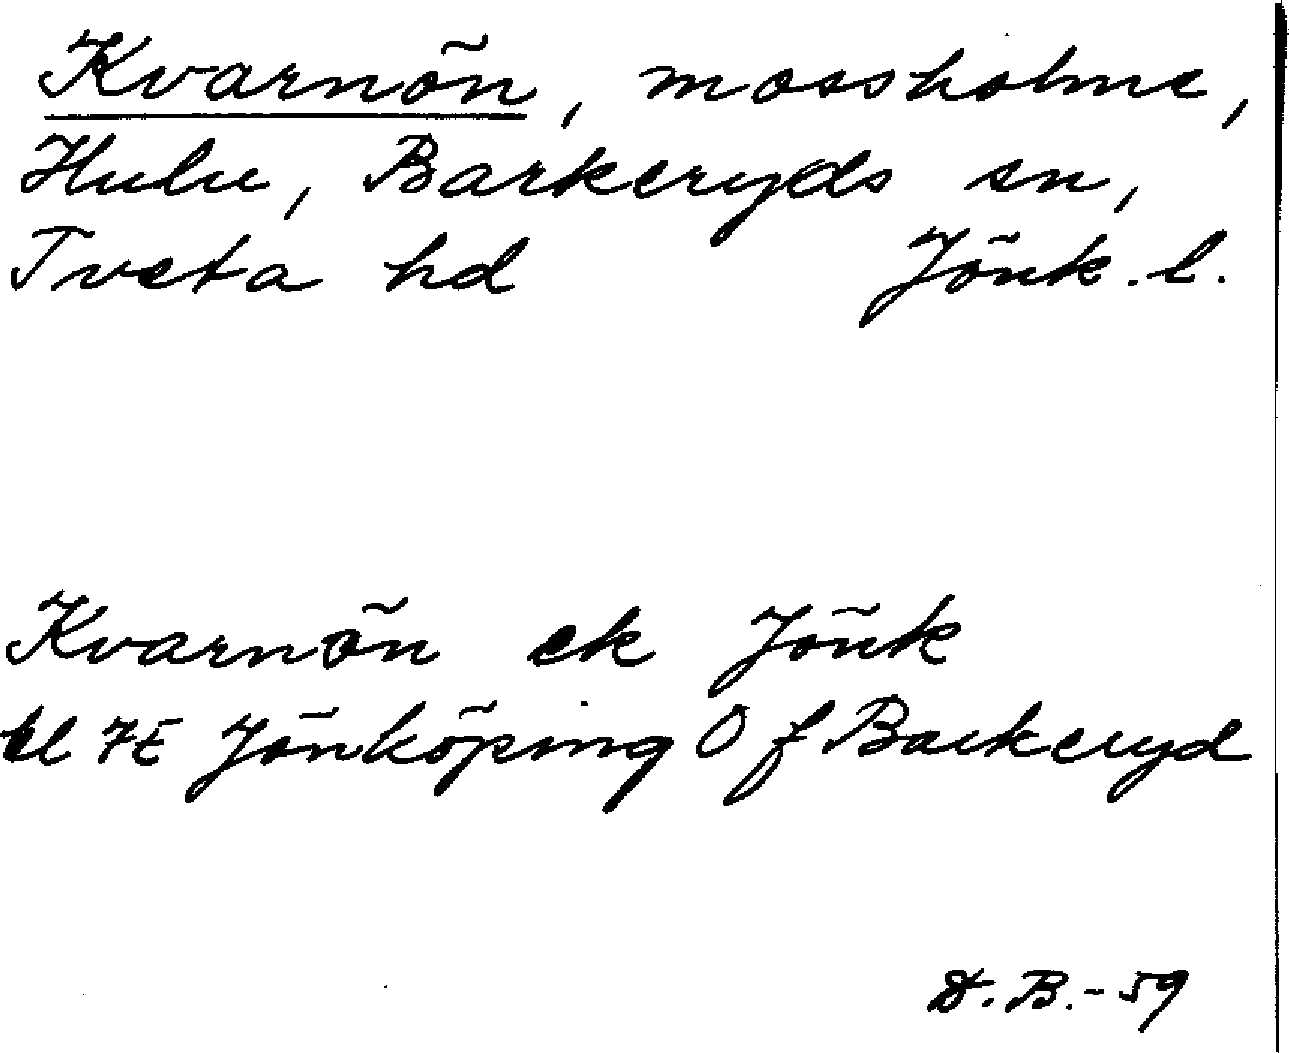 Kvarnön, mossholme,
Hulu, Barkeryds sn,
Tveta hd Jönk. l.
Kvarnön ek Jönk
bl 7E Jönköping O f Barkeryd
D. B. - 59